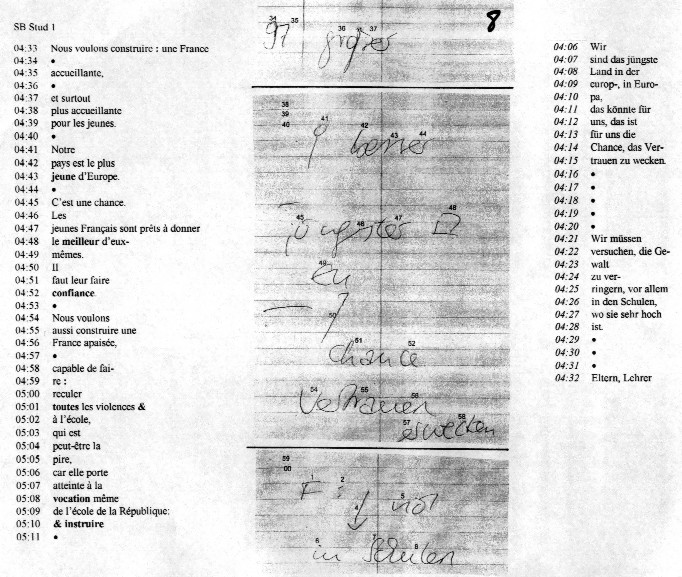 SB Stud 1
04:33 Nous voulons construire : une France
04:34 •
04:35 accueillante,
04:36 •
04:37 et surtout
04:38 plus accueillante
04:39 pour les jeunes.
04:40 •
04:41 Notre
04:42 pays est le plus
04:43 jeune d'Europe.
04:44 •
04:45 C'est une chance.
04:46 Les
04:47 jeunes Français sont prêts à donner
04:48 le meilleur d'eux-
04:49 mêmes.
04:50 Il
04:51 faut leur faire
04:52 confiance.
04:53 •
04:54 Nous voulons
04:55 aussi construire une
04:56 France apaisée,
04:57 •
04:58 capable de fai-
04:59 re :
05:00 reculer
05:01 toutes les violences &
05:02 à l'école,
05:03 qui est
05:04 peut-être la
05:05 pire,
05:06 car elle porte
05:07 atteinte à la
05:08 vocation même
05:09 de l'école de la République:
05:10 & instruire
05:11 •
8
34 35 36 37
38
39
40
41 42 43 44
45 46 47 48
jüngster
49
EU
50
51 52
Chance
54 55 56
Vertrauen
57 58
erwecken
59
00
1 2
F:
4 5
6 7 8
in Schulen
04:06 Wir
04:07 sind das jüngste
04:08 Land in der
04:09 europ-, in Euro-
04:10 pa,
04:11 das könnte für
04:12 uns, das ist
04:13 für uns die
04:14 Chance, das Ver-
04:15 trauen zu wecken.
04:16 •
04:17 •
04:18 •
04:19 •
04:20 •
04:21 Wir müssen
04:22 versuchen, die Ge-
04:23 walt
04:24 zu ver-
04:25 ringern, vor allem
04:26 in den Schulen,
04:27 wo sie sehr hoch
04:28 ist.
04:29 •
04:30 •
04:31 •
04:32 Eltern, Lehrer